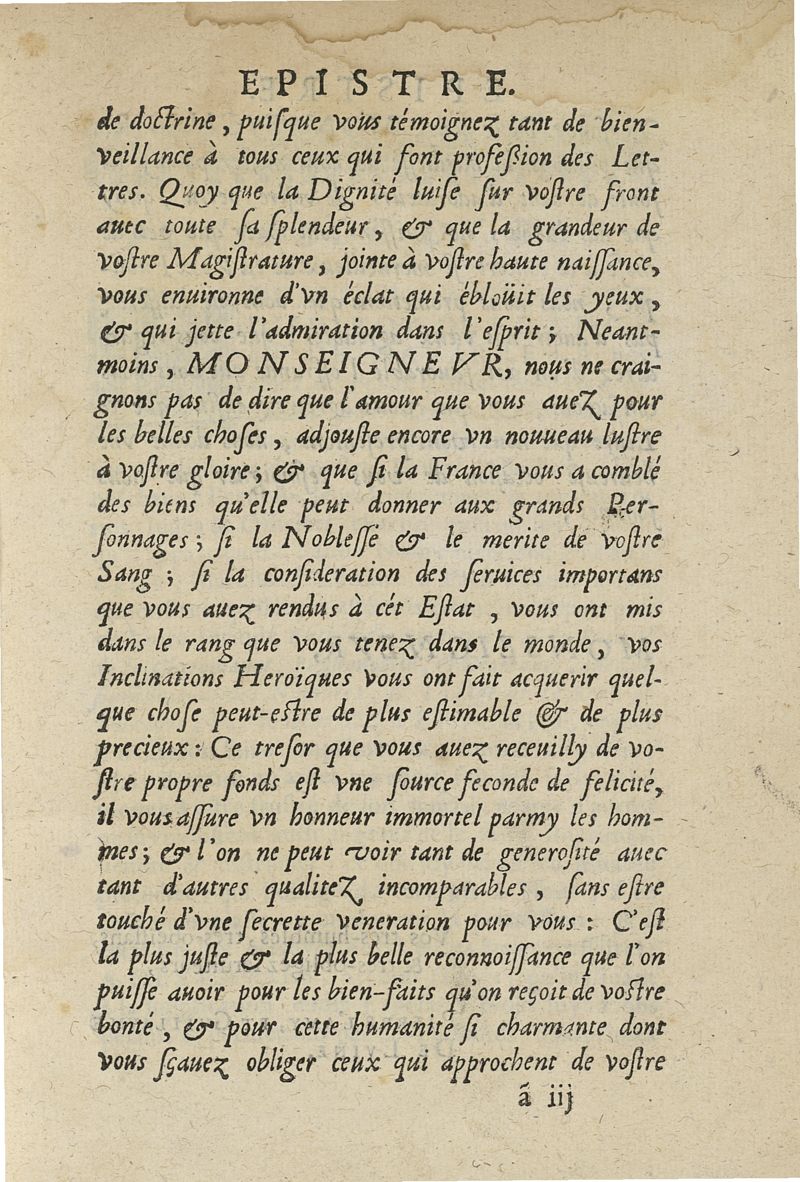 EPISTRE.
de doctrine, puiſque vous témoignez tant de bien-
veillance à tous ceux qui font profeßion des Let-
tres. Quoy que la Dignité luiſe ſur voſtre front
auec toute ſa ſplendeur, & que la grandeur de
voſtre Magiſtrature, jointe à voſtre haute naiſſance,
vous enuironne d'vn éclat qui ébloüit les yeux,
& qui jette l'admiration dans l'eſprit; Neant-
moins, MONSEIGNEVR, nous ne crai-
gnons pas de dire que l'amour que vous auez pour
les belles choſes, adjouſte encore vn nouueau luſtre
à voſtre gloire; & que ſi la France vous a comblé
des biens qu'elle peut donner aux grands Per-
ſonnages; ſi la Nobleſſe & le merite de voſtre
Sang; ſi la conſideration des ſeruices importans
que vous auez rendus à cét Eſtat, vous ont mis
dans le rang que vous tenez dans le monde, vos
Inclinations Heroïques vous ont fait acquerir quel-
que choſe peut-eſtre de plus eſtimable & de plus
precieux: Ce treſor que vous auez receuilly de vo-
ſtre propre fonds eſt vne ſource feconde de felicité,
il vous aſſure vn honneur immortel parmy les hom-
mes; & l'on ne peut voir tant de generoſité auec
tant d'autres qualitez incomparables, ſans eſtre
touché d'vne ſecrette veneration pour vous: C'eſt
la plus juſte & la plus belle reconnoiſſance que l'on
puiſſe auoir pour les bien-faits qu'on reçoit de voſtre
bonté, & pour cette humanité ſi charmante dont
vous ſçauez obliger ceux qui approchent de voſtre
ã iij